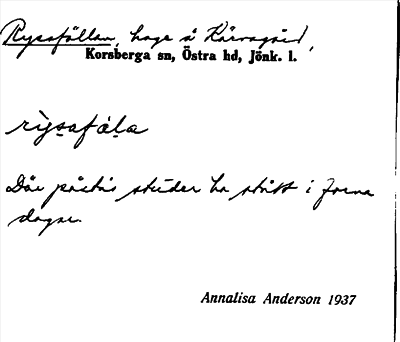 Ryssfållan, hage å Kårsagård,
Korsberga sn, Östra hd, Jönk. l.
rỳsafåla
Där påstås studer ha stått i forna
dagar.
Annalisa Anderson 1937